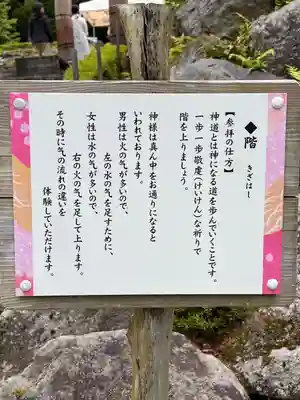 ◆階
きざはし
【参拝の仕方】
神道とは神になる道を歩んでいくことです。
一歩一歩敬虔(けいけん)な祈りで
階を上りましょう。
神様は真ん中をお通りになると
いわれております。
男性は火の气が多いので、
左の水の气を足すために、
女性は水の气が多いので、
右の火の气を足して上ります。
その時に气の流れの違いを
体験していただけます。